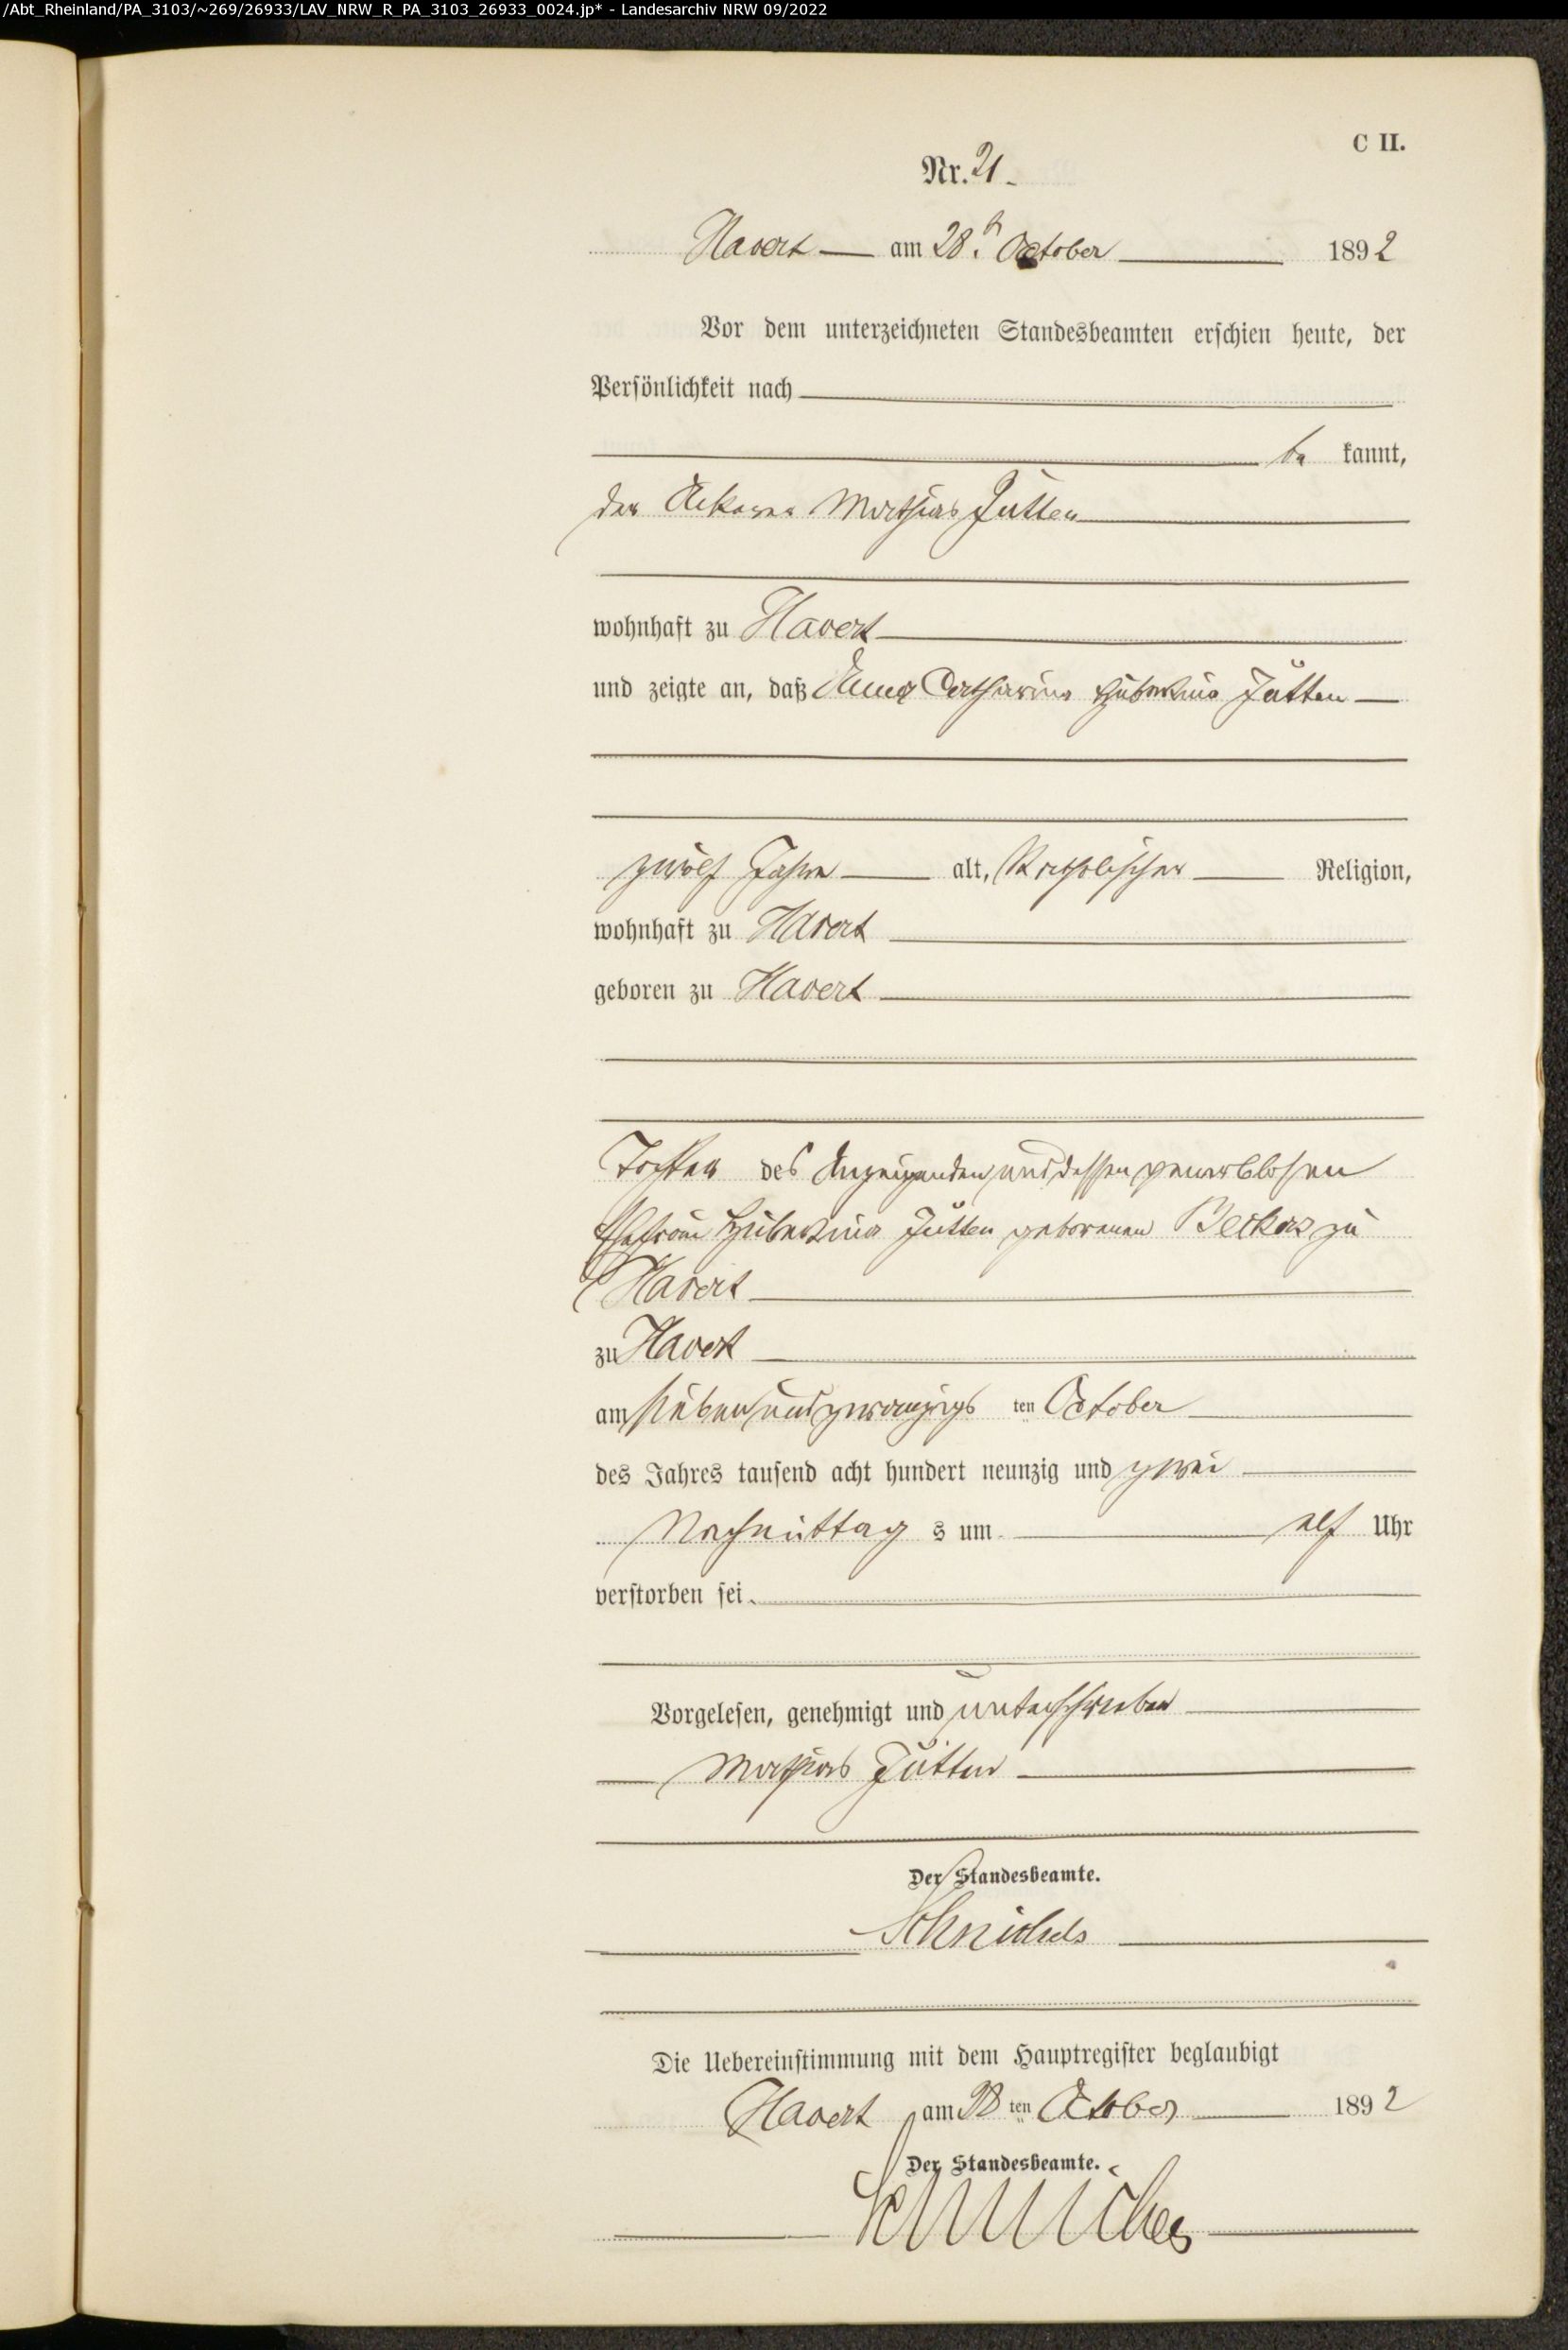 /Abt_Rheinland/PA_3103/~269/26933/LAV_NRW_R_PA_3103_26933_0024.jp* - Landesarchiv NRW 09/2022
C II.
Nr. 21.
Havert am 28t. October 1892
Vor dem unterzeichneten Standesbeamten erschien heute, der
Persönlichkeit nach
be kannt,
der Ackerer Mathias Jütten
wohnhaft zu Havert
und zeigte an, daß Anna Catharina Hubertina Jütten
zwölf Jahre alt, Katholischer Religion,
wohnhaft zu Havert
geboren zu Havert
Tochter des Anzeigenden und dessen gewerblosen
Ehefrau Hubertina Jütten geborenen Beckers zu
Havert
zu Havert
am sieben und zwanzigs ten October
des Jahres tausend acht hundert neunzig und zwei
Nachmittag s um elf Uhr
verstorben sei.
Vorgelesen, genehmigt und unterschrieben
Mathias Jütten
Der Standesbeamte.
Die Uebereinstimmung mit dem Hauptregister beglaubigt
Havert am 28 ten October 1892
Der Standesbeamte.